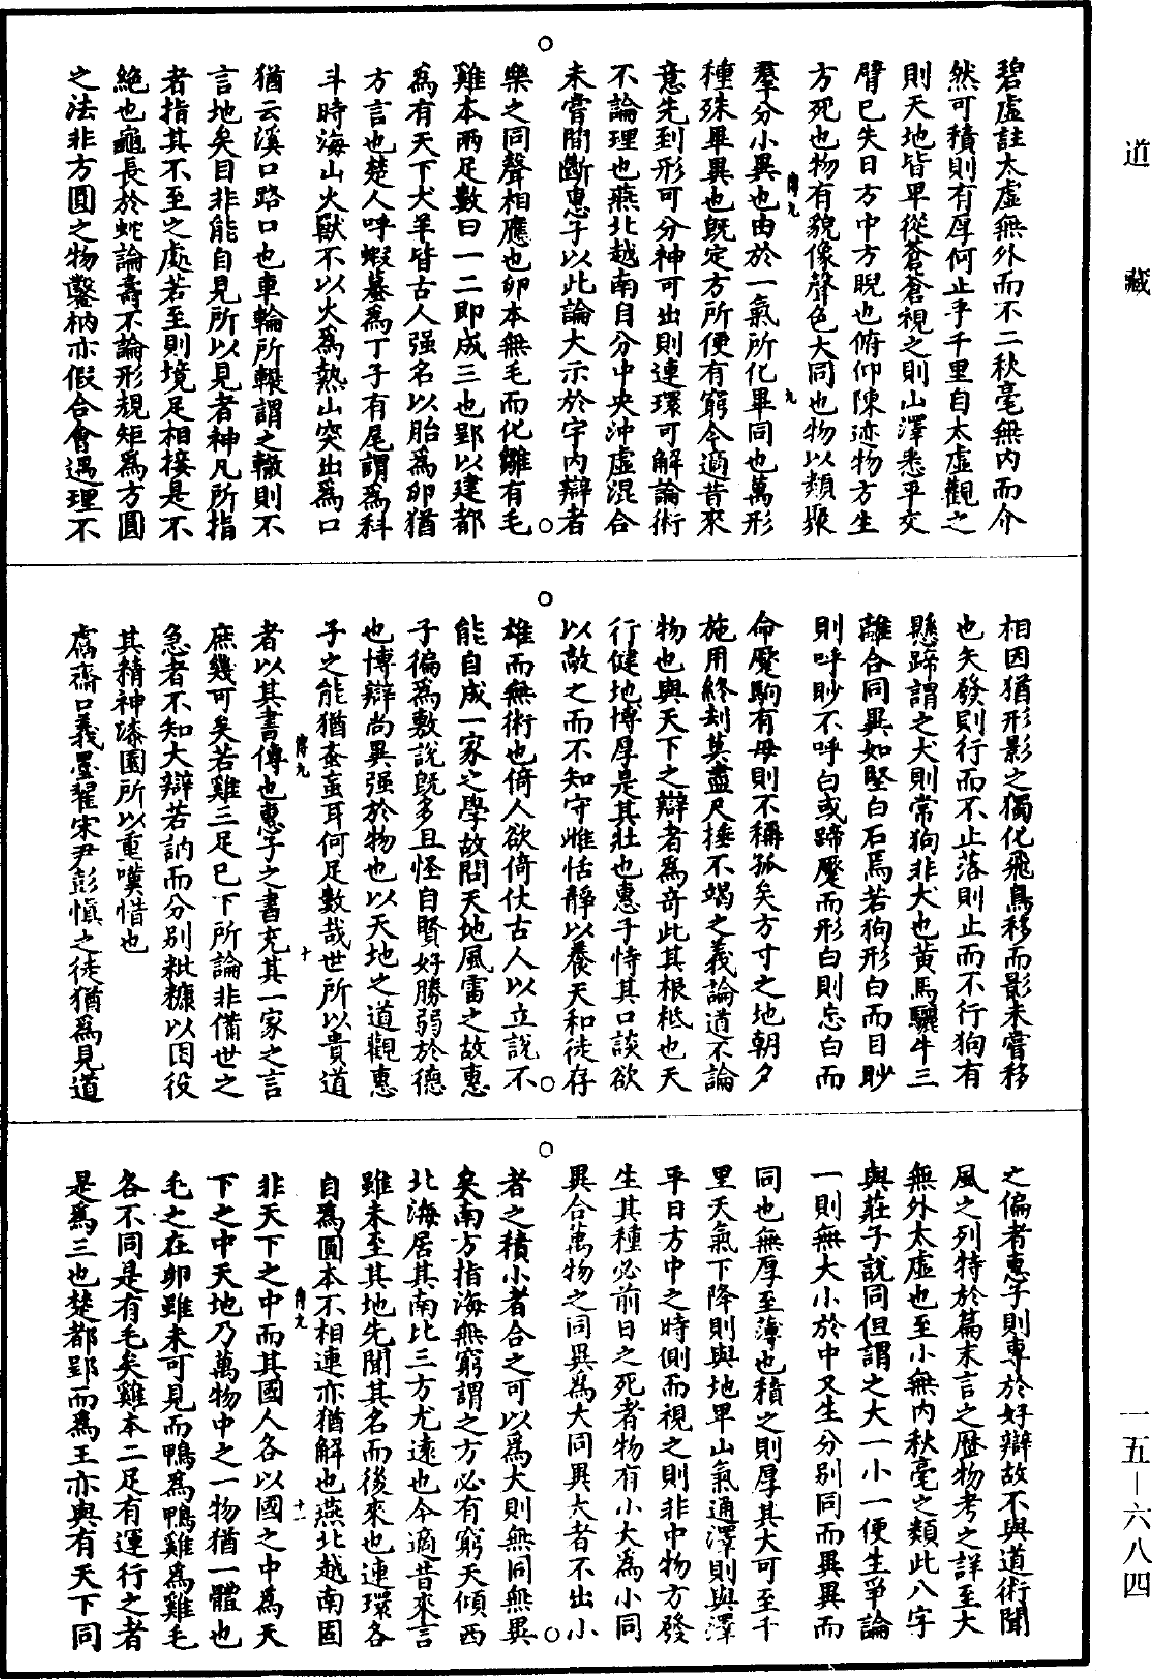 道藏
一五—六八四
碧虛註太虛無外而不二秋毫無內而介
然可積則有厚何止乎千里自太虛觀之
則天地皆卑從蒼蒼視之則山澤悉平交
臂已失日方中方睨也俯仰陳迹物方生
方死也物有貌像聲色大同也物以類聚
羣分小異也由於一氣所化畢同也萬形
種殊畢異也既定方所便有窮今適昔來
意先到形可分神可出則連環可解論術
不論理也燕北越南自分中央沖虛混合
未嘗間斷惠子以此論大示於宇內辯者
樂之同聲相應也卵本無毛而化雛有毛
雞本兩足數曰一二即成三也郢以建都
為有天下犬羊皆古人强名以胎為卵猶
方言也楚人呼蝦蟇為丁子有尾謂為科
斗時海山火獸不以火為熱山突出為口
猶云溪口路口也車輪所輾謂之轍則不
言地矣目非能自見所以見者神凡所指
者指其不至之處若至則境足相接是不
絕也龜長於蛇論壽不論形規矩為方圓
之法非方圓之物鑿枘亦假合會遇理不
相因猶形影之獨化飛鳥移而影未嘗移
也矢發則行而不止落則止而不行狗有
懸蹄謂之犬則常狗非犬也黃馬驪牛三
離合同異如堅白石焉若狗形白而目眇
則呼眇不呼白或蹄魘而形白則忘白而
命魘駒有母則不稱孤矣方寸之地朝夕
施用終刦莫盡尺捶不竭之義論道不論
物也與天下之辯者為奇此其根柢也天
行健地博厚是其壯也惠子恃其口談欲
以敵之而不知守惟恬靜以養天和徒存
雄而無術也倚人欲倚仗古人以立說不
能自成一家之學故問天地風雷之故惠
子徧為敷說既多且怪自賢好勝弱於德
也博辯尚異强於物也以天地之道觀惠
子之能猶蚉蝱耳何足數哉世所以貴道
者以其書傳也惠子之書充其一家之言
庶幾可矣若雞三足已下所論非備世之
急者不知大辯若訥而分別粃糠以困役
其精神漆園所以重嘆惜也
鬳齋口義墨翟宋尹彭慎之徒猶為見道
之偏者惠子則專於好辯故不與道術聞
風之列特於篇末言之歷物考之詳至大
無外太虛也至小無內秋毫之類此八字
與莊子說同但謂之大一小一便生爭論
一則無大小於中又生分別同而異異而
同也無厚至薄也積之則厚其大可至千
里天氣下降則與地卑山氣通澤則與澤
平日方中之時側而視之則非中物方發
生其種必前日之死者物有小大為小同
異合萬物之同異為大同異大者不出小
者之積小者合之可以為大則無同無異
矣南方指海無窮謂之方必有窮天傾西
北海居其南比三方尤遠也今適昔來言
雖未至其地先聞其名而後來也連環各
自為圓本不相連亦猶解也燕北越南固
非天下之中而其國人各以國之中為天
下之中天地乃萬物中之一物猶一體也
毛之在卵雖未可見而鴨為鴨雞為雞毛
各不同是有毛矣雞本二足有運行之者
是為三也楚都郢而為王亦與有天下同